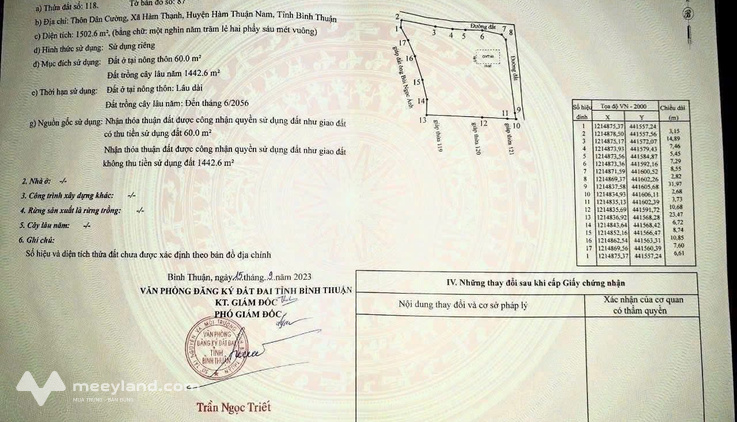 a) Thửa đất số: 118. Tờ bản đồ số: 87
b) Địa chỉ: Thôn Dân Cường, Xã Hàm Thạnh, Huyện Hàm Thuận Nam, Tỉnh Bình Thuận
c) Diện tích: 1502.6 m², (bằng chữ: một nghìn năm trăm lẻ hai phẩy sáu mét vuông)
d) Hình thức sử dụng: Sử dụng riêng
đ) Mục đích sử dụng: Đất ở tại nông thôn 60.0 m²
Đất trồng cây lâu năm 1442.6 m²
e) Thời hạn sử dụng: Đất ở tại nông thôn: Lâu dài
Đất trồng cây lâu năm: Đến tháng 6/2056
g) Nguồn gốc sử dụng: Nhận thừa đất được công nhận quyền sử dụng đất như giao đất
có thu tiền sử dụng đất 60.0 m²
Nhận thừa đất được công nhận quyền sử dụng đất như giao đất
không thu tiền sử dụng đất 1442.6 m²
2. Nhà ở: -/-
3. Công trình xây dựng khác: -/-
4. Rừng sản xuất là rừng trồng: -/-
5. Cây lâu năm: -/-
6. Ghi chú:
Số hiệu và diện tích thửa đất chưa được xác định theo bản đồ địa chính
Bình Thuận, ngày 15 tháng 9 năm 2023
VĂN PHÒNG ĐĂNG KÝ ĐẤT ĐAI TỈNH BÌNH THUẬN
KT. GIÁM ĐỐC
PHÓ GIÁM ĐỐC
VĂN PHÒNG
ĐĂNG KÝ ĐẤT ĐAI
TỈNH
BÌNH THUẬN
Trần Ngọc Triết
1 2 3 4 5 6 7 8 9 10 11 12 13 14 15 16 17
Đường đất
Đường đất
giáp đất ông Bùi Ngọc Anh
giáp thửa 119
giáp thửa 120
giáp thửa 121
Số hiệu đỉnh Tọa độ VN - 2000 Chiều dài (m)
X Y
1 1214875,37 441557,24
3,15
2 1214878,50 441557,56
14,89
3 1214875,17 441572,07
7,46
4 1214873,93 441579,43
5,45
5 1214873,56 441584,87
7,29
6 1214873,36 441592,16
8,55
7 1214871,59 441600,52
2,82
8 1214869,37 441602,26
31,97
9 1214837,58 441605,68
2,68
10 1214834,93 441606,11
3,73
11 1214835,13 441602,39
10,68
12 1214835,69 441591,72
23,47
13 1214836,92 441568,28
6,72
14 1214843,64 441568,42
8,74
15 1214852,16 441566,47
10,85
16 1214862,54 441563,31
7,60
17 1214869,56 441560,39
6,61
1 1214875,37 441557,24
IV. Những thay đổi sau khi cấp Giấy chứng nhận
Nội dung thay đổi và cơ sở pháp lý
Xác nhận của cơ quan có thẩm quyền
meeyland.com